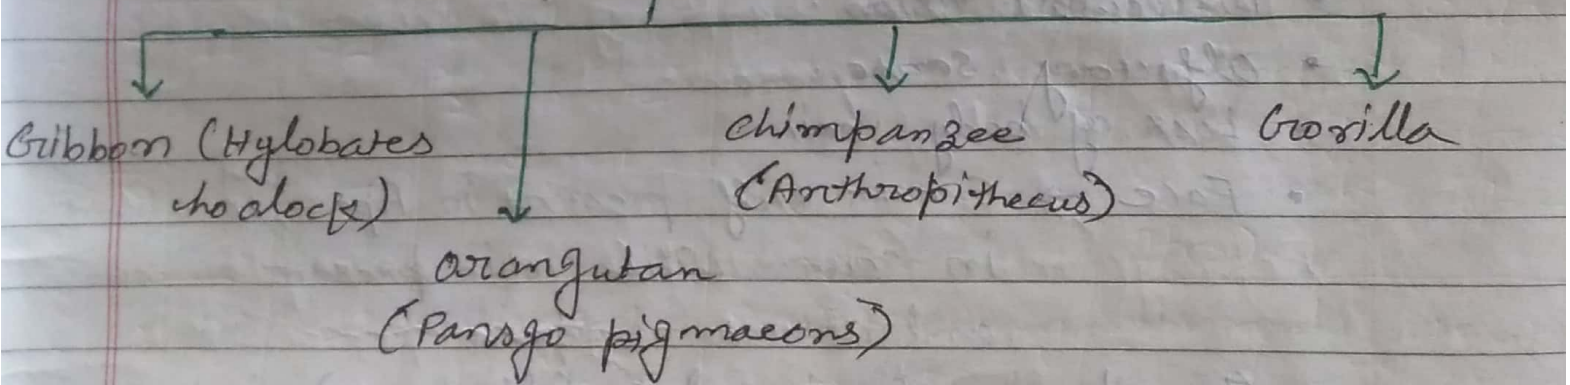 Gibbon (Hylobates
hoolock)
orangutan
(Pansgo pigmaeons)
chimpanzee
(Anthropithecus)
Gorilla